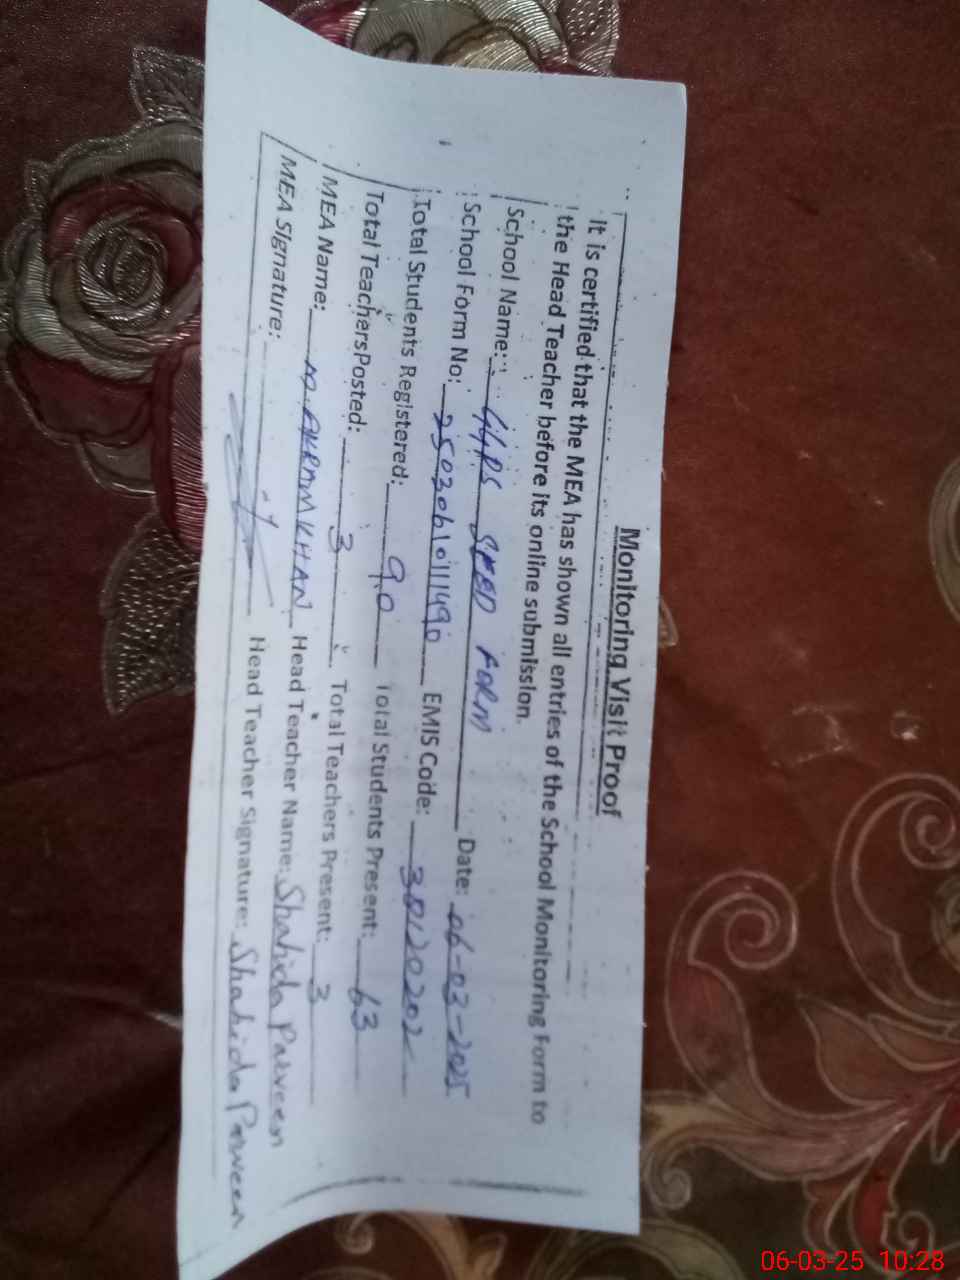 Monitoring Visit Proof
It is certified that the MEA has shown all entries of the School Monitoring Form to
the Head Teacher before its online submission.
School Name: GGPS SEED FORM Date: 06-03-2025
School Form No: 25030610111490 EMIS Code: 30120202
Total Students Registered: 90 Total Students Present: 63
Total Teachers Posted: 3 Total Teachers Present: 3
MEA Name: M. AKRAM KHAN Head Teacher Name: Shahida Parveen
MEA Signature: Head Teacher Signature: Shahida Parveen
06-03-25 10:28